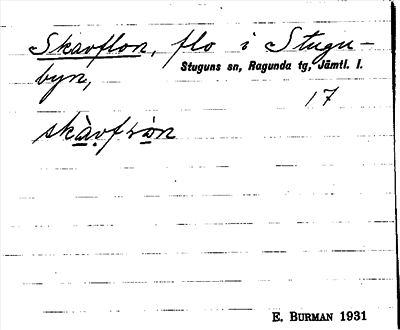 Skavflon, flo i Stugu-
Stuguns sn, Ragunda tg, Jämtl. l.
byn,
17
skàvfròn
E. BURMAN 1931